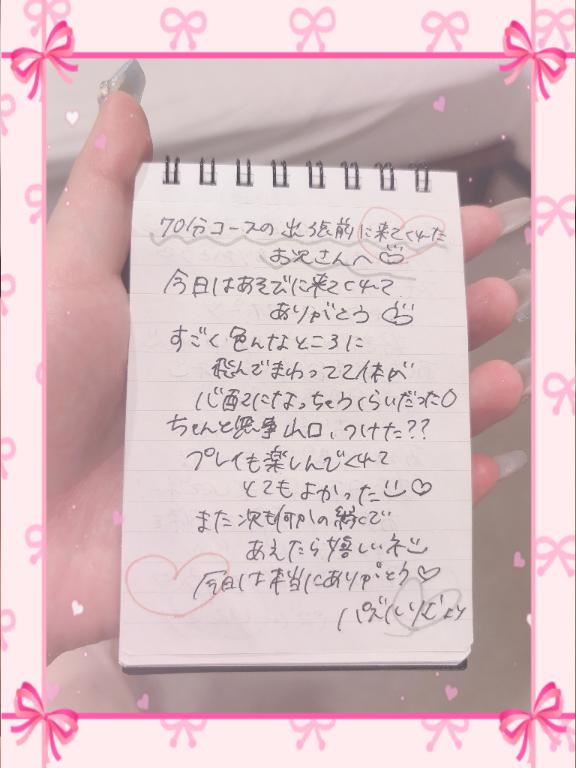 70分コースの出張前に来てくれた
お兄さんへ♡
今日はあそびに来てくれて
ありがとう♡
すごく色んなところに
飛んでまわってて体が
心配になっちゃうくらいだった
ちゃんと無事山口、つけた??
プレイも楽しんでくれて
とてもよかった♡
また次も何かの
あえたら嬉しいネ
今日は本当にありがとう♡